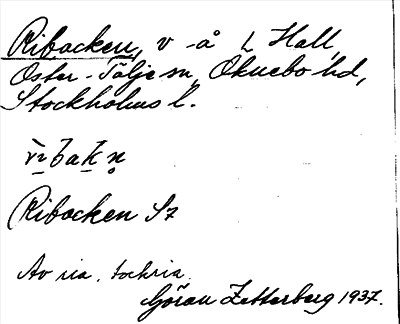 Ribacken, v -å L Hall,
Öster-Tälje sn, Öknebo hd,
Stockholms l.
Ribacken Sz
Av ria, torkria.
Göran Zetterberg 1937.